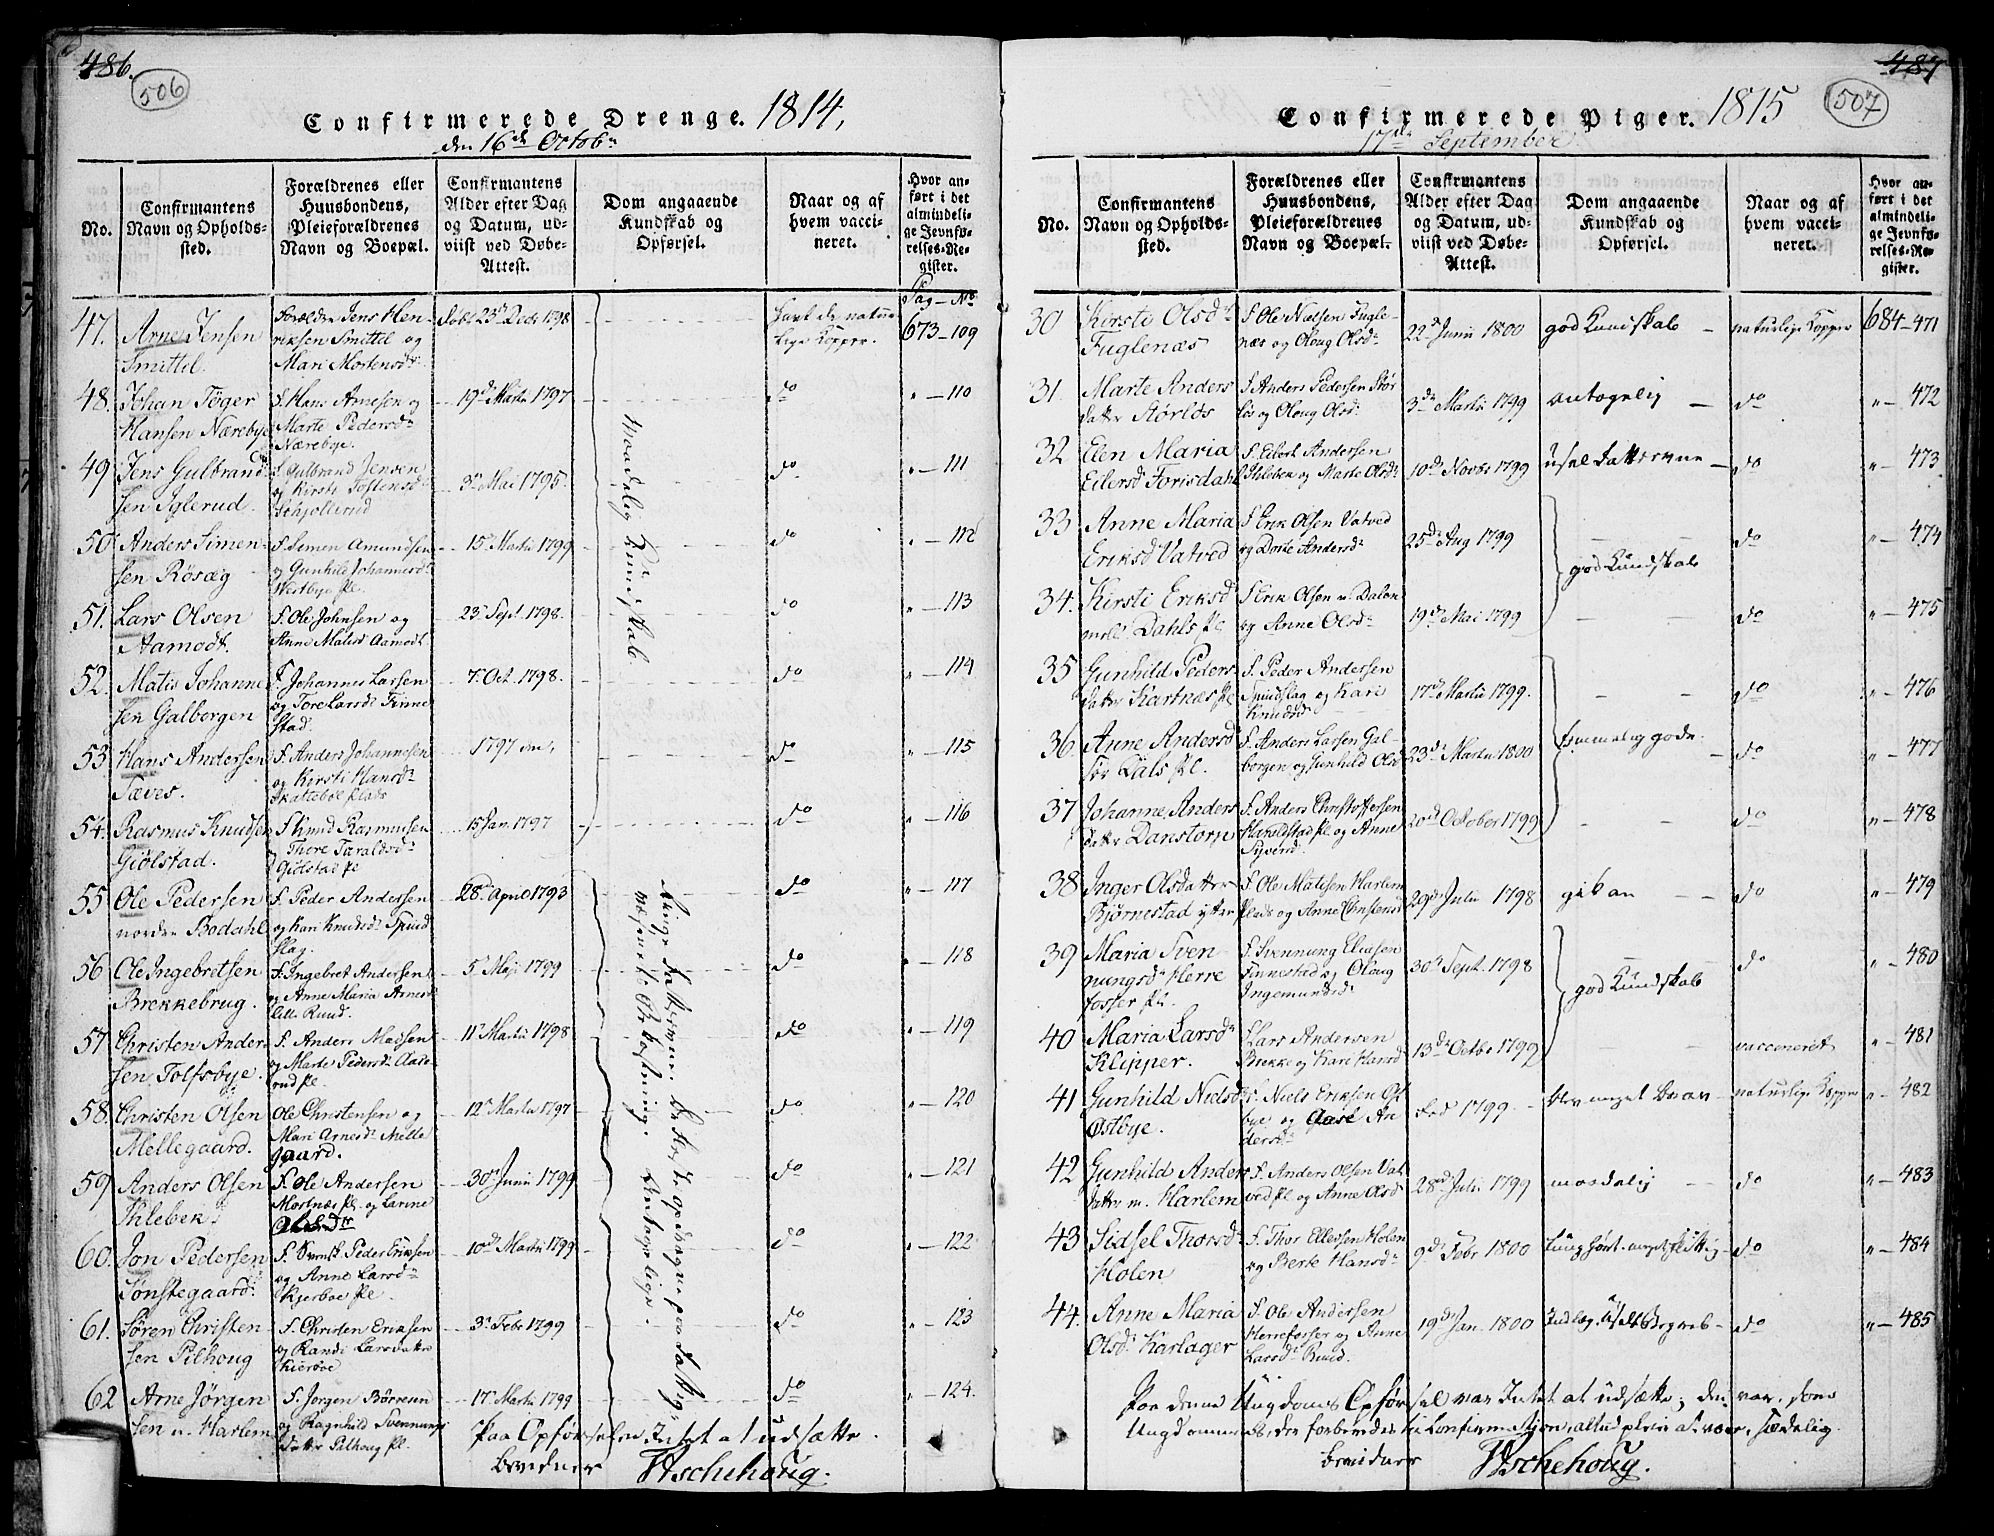 486.
506
Confirmerede Drenge. 1814,
den 16de Octobr
No.
Confirmantens Navn og Opholds-sted.
Forældrenes eller Huusbondens, Pleieforældrenes Navn og Boepæl.
Confirmantens Alder efter Dag og Datum, ud-viist ved Døbe-Attest.
Dom angaaende Kundskab og Opførsel.
Naar og af hvem vacci-neret.
Hvor an-ført i det almindeli-ge Jevnfø-relses-Re-gister.
Pag – No
47. Arne Jensen Smittil. Forældre Jens Hen-riksen Smittil og Mari Mortensdr. født 23de Decbr 1798 havt de natur-lige Kopper. 673-109
48. Johan Töger Hansen Næreby F. Hans Arnesen og Marte Pedersdr Nærebye. 19de Martii 1797 do " – 110
49 Jens Gulbrand-sen Iglerud. F. Gulbrand Jensen og Kirsti Tostensd Schjollerud 3de Mai 1795. do " – 111
50 Anders Simen-sen Rösæg F. Simen Amundsen og Gunhild Johannesdr Westbye Pl. 15de Martii 1799 do " – 112
51. Lars Olsen Aamodt. F. Ole Johnsen og Anne Matisd Aamodt 23de Sept. 1798. do " – 113
52. Matis Johanne-sen Galborgen F. Johannes Larsen og Tore Larsd Finne-stad. 7de Oct. 1798. do " – 114
53 Hans Andersen Tæves. F. Anders Johannesen og Kirsti Hansdr Skatteboe Plads 1797 do " – 115
54. Rasmus Knudsen Giölstad. F. Knud Rasmusen Thore Taraldsd Giölstad Pl 15 Jan. 1797 do " – 116
maadelig Kundskab
55 Ole Pedersen nordre Bodahl F. Peder Andersen og Kari Knudsdr Spind-slag. 28de April 1793 do " – 117
56 Ole Ingebretsen Brekkebrug. F. Ingebret Andersen og Anne Maria Arnesd lille Ruud. 5de Maji 1799 do " – 118
57 Christen Ander-sen Tolfsbye. F. Anders Madsen og Marte Pedersdr Aase-rud Pl. 11te Martii 1798 do " – 119
58. Christen Olsen Mellegaard. Ole Christensen og Mari Arnesdr Melle-gaard. 12te Martii 1797 do " – 120
59 Anders Olsen Ihlebek F. Ole Andersen Mostnæs Pl. og Larine Olsdr 30te Junii 1799 do " – 121
60. Jon Pedersen Sönstegaard. F. Peder Eriksen og Anne Larsdr Kjerboe Pl. 10de Martii 1799 do " – 122
61. Sören Christen-sen Pilhoug F. Christen Eriksen og Randi Larsdatter Kierboe 3de Febr 1799 do " – 123
62 Arne Jörgen-sen n. Harlem F. Jörgen Börresen og Ragnhild Svennungs-datter Pilhoug Pl. 17de Martii 1799 do " – 124.
Paa Opförselen Intet at udsætte.
bevidner HAschehoug.
487
507
Confirmerede Piger. 1815
17de September
No.
Confirmantens Navn og Opholds-sted.
Forældrenes eller Huusbondens, Pleieforældrenes Navn og Boepæl.
Confirmantens Alder efter Dag og Datum, ud-viist ved Døbe-Attest.
Dom angaaende Kundskab og Opførsel.
Naar og af hvem vacci-neret.
Hvor an-ført i det almindeli-ge Jevnfø-relses-Re-gister.
30 Kirsti Olsdr Fuglenæs F. Ole Nielsen Fugle-næs og Oloug Olsdr 22de Junii 1800 god Kundskab naturlige Kopper 684-471
31 Marte Anders-datter Störlös F. Anders Pedersen Stör-lös og Oloug Olsdr 3die Martii 1799 antagelig do " – 472
32 Elen Maria Eilersd Torisdahl F. Eilert Andersen Ihlebek og Marte Olsdr 10de Novbr 1799 usel Fatteevne do " – 473
33 Anne Maria Eriksd Vatved F. Erik Olsen Vatved og Dorte Andersdr 25de Aug 1799 god Kundskab do " – 474
34. Kirsti Eriksd Dahls Pl F. Erik Olsen og Anne Olsdr 19de Mai 1799 do " – 475
35 Gunhild Peders-datter Kartnæs Pl F. Peder Andersen Spindslag og Kari Knudsdr 17de Martii 1799. do " – 476
36. Anne Andersd Dals Pl. F. Anders Larsen Gal-borgen og Gunhild Olsd 23de Martii 1800 temmelig gode. do " – 477
37 Johanne Anders-datter Danstorp F. Anders Christoffersen Haraldstad Pl og Anne Syversd. 20de October 1799 do " – 478
38 Inger Olsdatter Björnestad ytter F. Ole Matisen Harlem Plads og Anne Christensd 29de Julii 1798 gik an do " – 479
39 Maria Sven-nungsd. Herre-fosser Pl. F. Svennung Eliasen Finnestad og Oloug Ingemundsd 30te Sept. 1798 god Kundskab do " – 480
40 Maria Larsdr Klipper. F. Lars Andersen Brekke og Kari Hansd 13de Octbr 1799 vaccineret " – 481
41 Gunhild Nielsd Östbye. F. Niels Eriksen Öst-bye og Aase An-dersdr Föd 1799. naturlige Kopper " – 482
42 Gunhild Anders-datter n. Harlem F. Anders Olsen Vat-ved Pl og Anne Olsd 28de Julii 1799 maadelig do " – 483
43 Sidsel Thorsd Holen F. Thor Ellevsen Holen og Berte Hansdr 9de Febr 1800 do " – 484
44. Anne Maria Olsdr Karlager F. Ole Andersen Herrefosser og Anne Larsdr Ruud. 19de Jan. 1800 do " – 485
Paa denne Ungdoms Opför-sel var Intet at udsætte; den var, som
Ungdommen, der forberedes til Confirmation, altid pleier at være, sædelig.
bevidner HAschehoug.